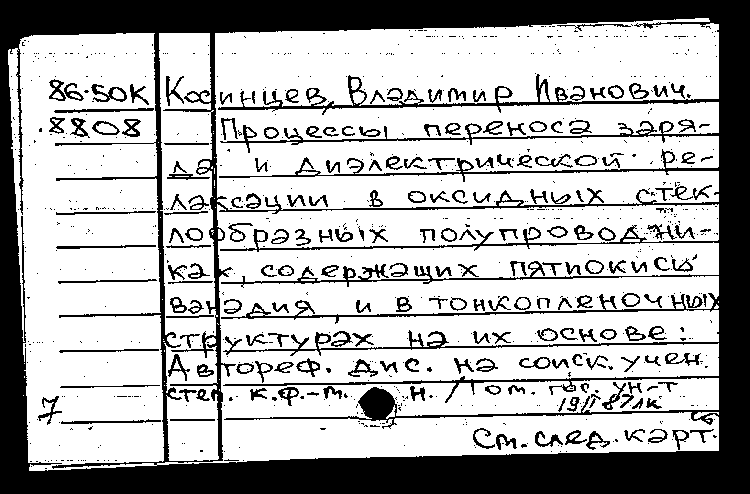 86-50К Косинцев, Владимир Иванович.
8808 Процессы переноса заря-
да и диэлектрической ре-
лаксации в оксидных стек-
лообразных полупроводни-
ках, содержащих пятиокись
ванадия, и в тонкопленочных
структурах на их основе:
Автореф. дис. на соиск. учен.
степ. к.ф.-м. н. /Том. гос. ун-т
7
См. след. карт.